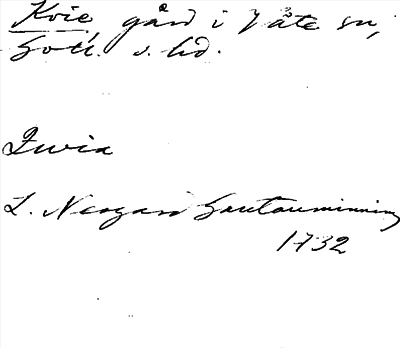 Kvie, gård i Våte sn,
Gotl. s. hd.
Qwia
L. Neogard Gautauminning
1732